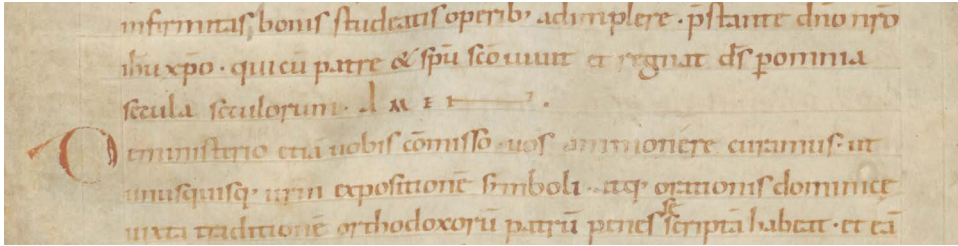 infirmitas, bonis studeatis operib; adimplere · p̄stante dn̄o nr̄o
ih̄u xp̄o · qui cū patre & sp̄u sc̄o uiuit et regnat d̄s p omnia
secula seculorum · A M E N .
De ministerio etiā uobis cōmisso · uos ammonere curamus · ut
unusquisq; ur̄m expositionē simboli · atq; orationis dominicę
iuxta traditionē orthodoxorū patrū penes se scriptā habeat · et eā